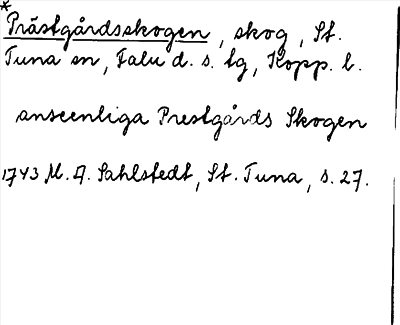 * Prästgårdsskogen, skog, St.
Tuna sn, Falu d. s. tg, Kopp. l.
anseenliga Prestgårds Skogen
1743 M. A. Sahlstedt, St. Tuna, s. 27.